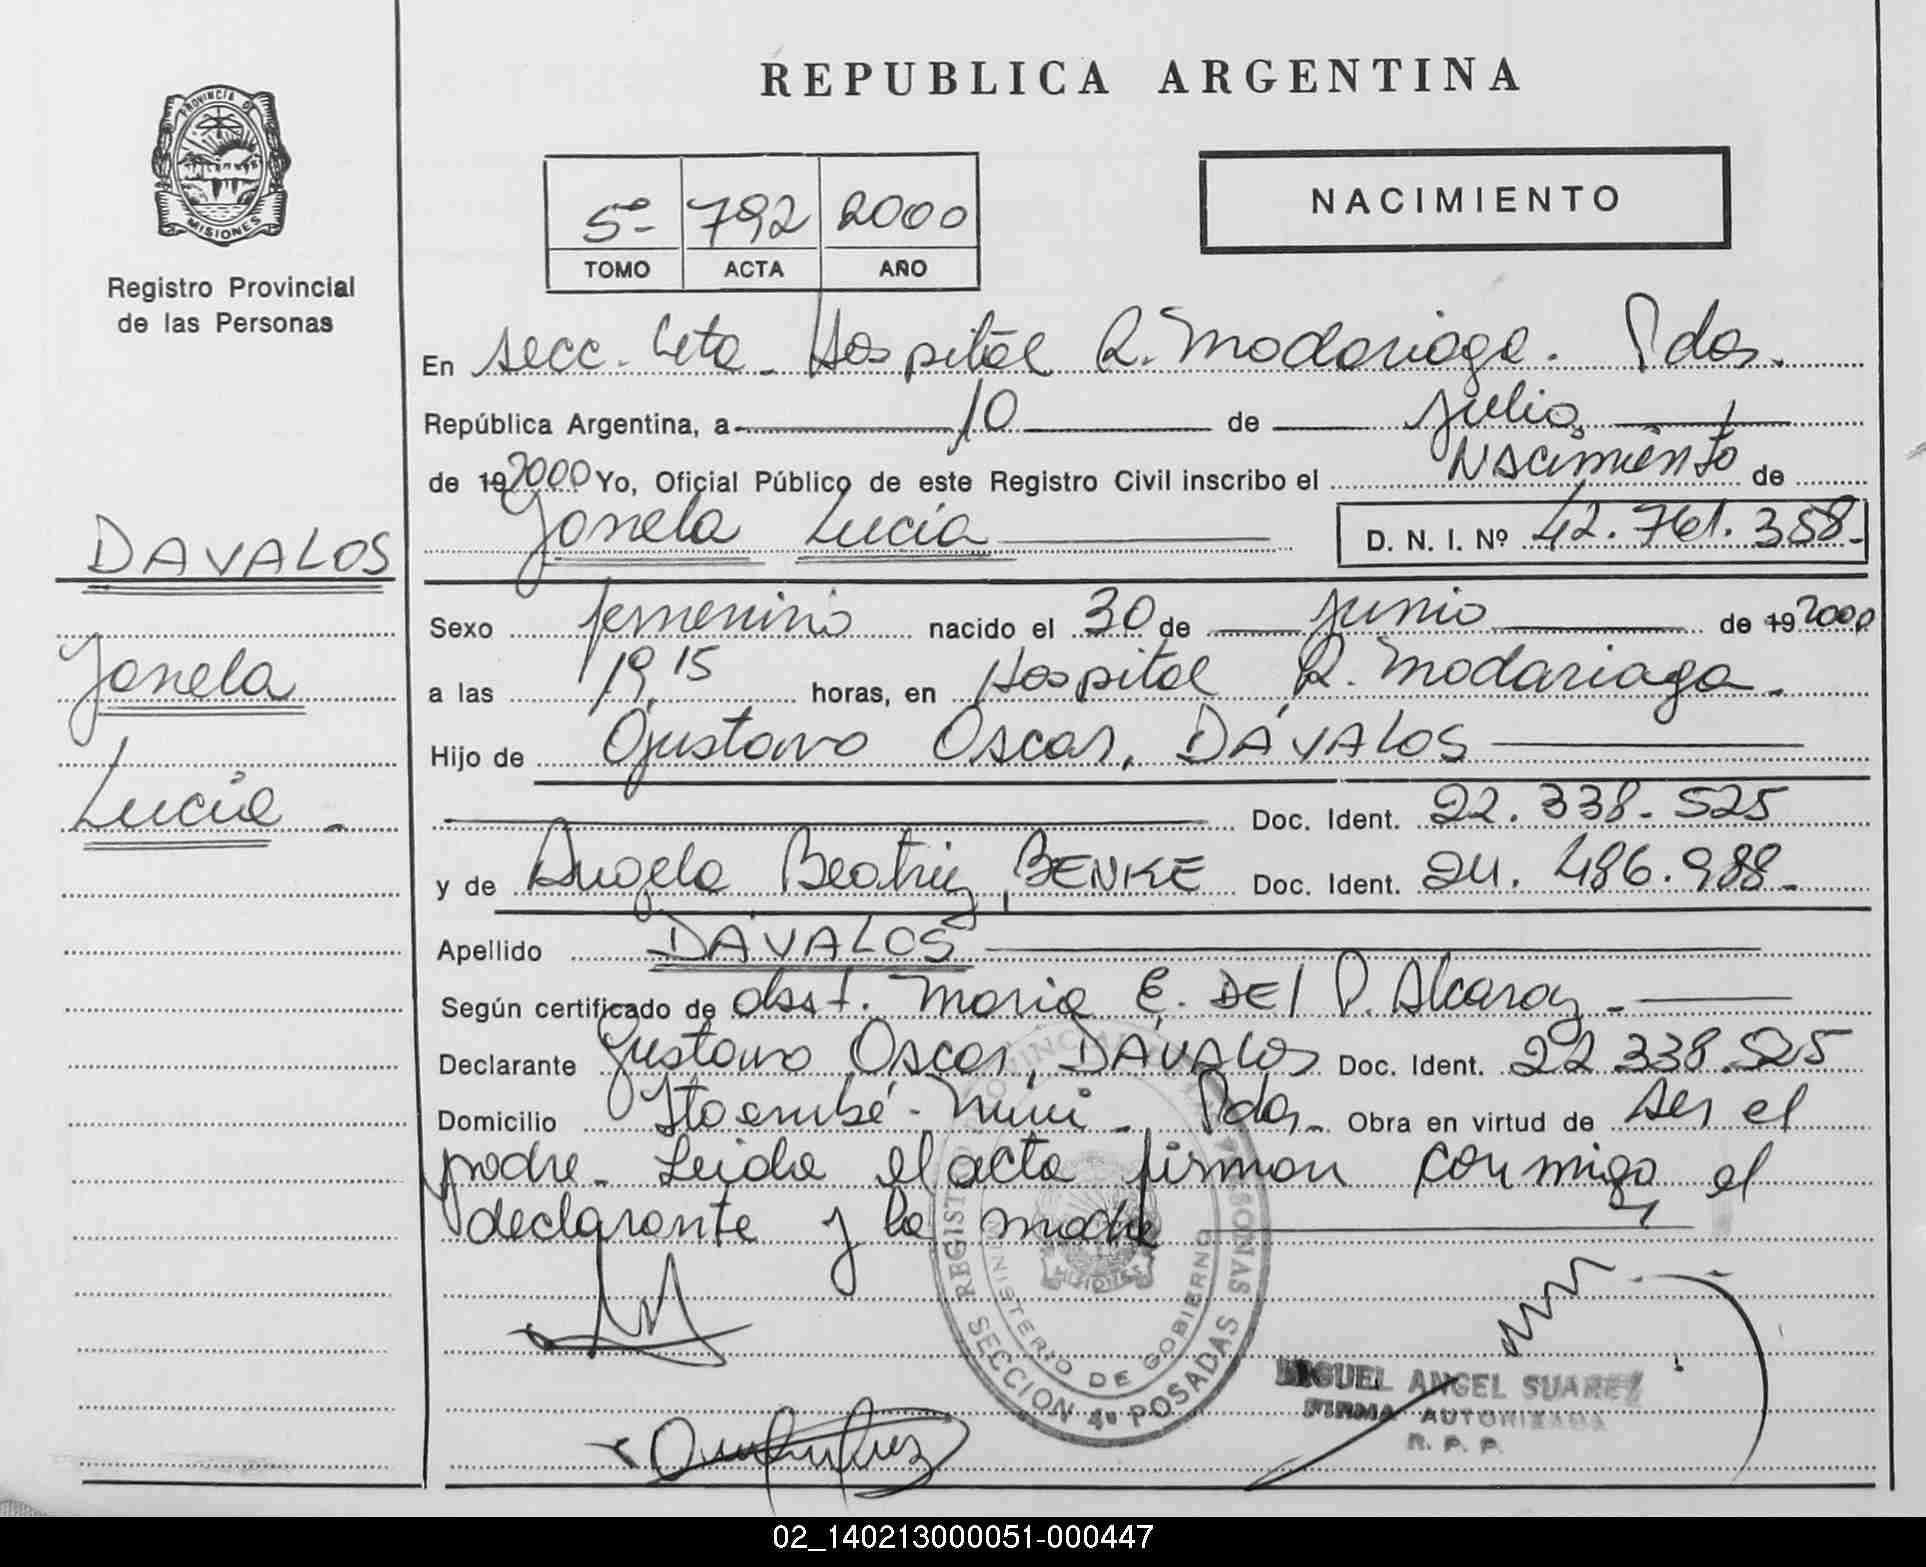 REPUBLICA ARGENTINA
PROVINCIA DE
MISIONES
Registro Provincial
de las Personas
5º 792 2000
TOMO ACTA AÑO
NACIMIENTO
En secc. 4ta - Hospital R. Madariaga. Pdas.
República Argentina, a 10 de julio
de 19 2000 Yo, Oficial Público de este Registro Civil inscribo el Nacimiento de
Yanela Lucía D. N. I. Nº 42.761.358.-
DAVALOS
Yanela
Lucía -
Sexo femenino nacido el 30 de junio de 19 2000
a las 19,15 horas, en Hospital R. Madariaga.
Hijo de Gustavo Oscar, DÁVALOS
Doc. Ident. 22.338.525
y de Angela Beatriz, BENKE Doc. Ident. 24.486.988.-
Apellido DÁVALOS
Según certificado de obst. Maria E. DEl P. Alcaraz -
Declarante Gustavo Oscar, DÁVALOS Doc. Ident. 22.338.525
Domicilio Itaembé - Miní - Pdas. Obra en virtud de ser el
padre. Leida el acta firman conmigo el
declarante y la madre
REGISTRO PROVINCIAL DE LAS PERSONAS
MINISTERIO DE GOBIERNO
SECCION 4º POSADAS
MIGUEL ANGEL SUAREZ
FIRMA AUTORIZADA
R. P. P.
02_140213000051-000447